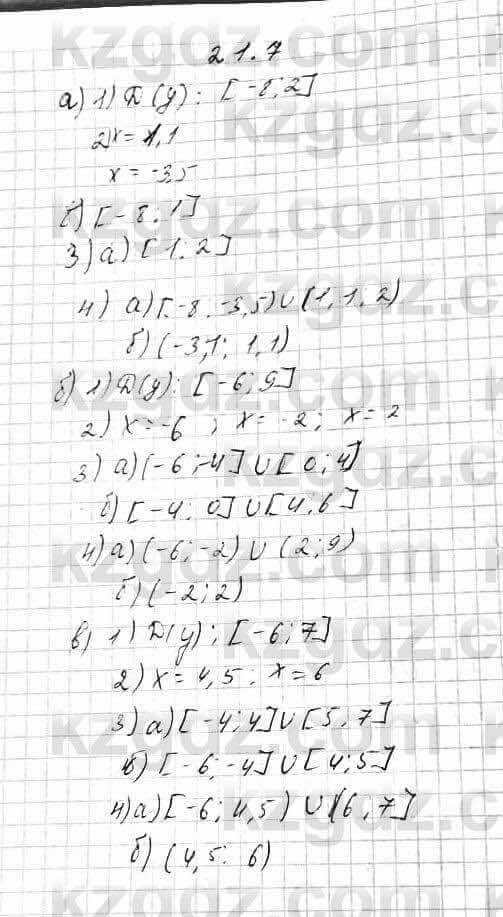 21.7
а) 1) D(y): [-8; 2]
2) x = 1,1
x = -3,5
б) [-8; 1]
3) а) [1; 2]
4) а) [-8; -3,5) ∪ (1,1; 2)
б) (-3,1; 1,1)
б) 1) D(y): [-6; 9]
2) x = -6 ; x = -2 ; x = 2
3) а) (-6; -4] ∪ [0; 4]
б) [-4; 0] ∪ [4; 6]
4) а) (-6; -2) ∪ (2; 9)
б) (-2; 2)
в) 1) D(y): [-6; 7]
2) x = 4,5 ; x = 6
3) а) [-4; 4] ∪ [5; 7]
б) [-6; -4] ∪ [4; 5]
4) а) [-6; 4,5) ∪ (6; 7]
б) (4,5; 6)
kzgdz.com